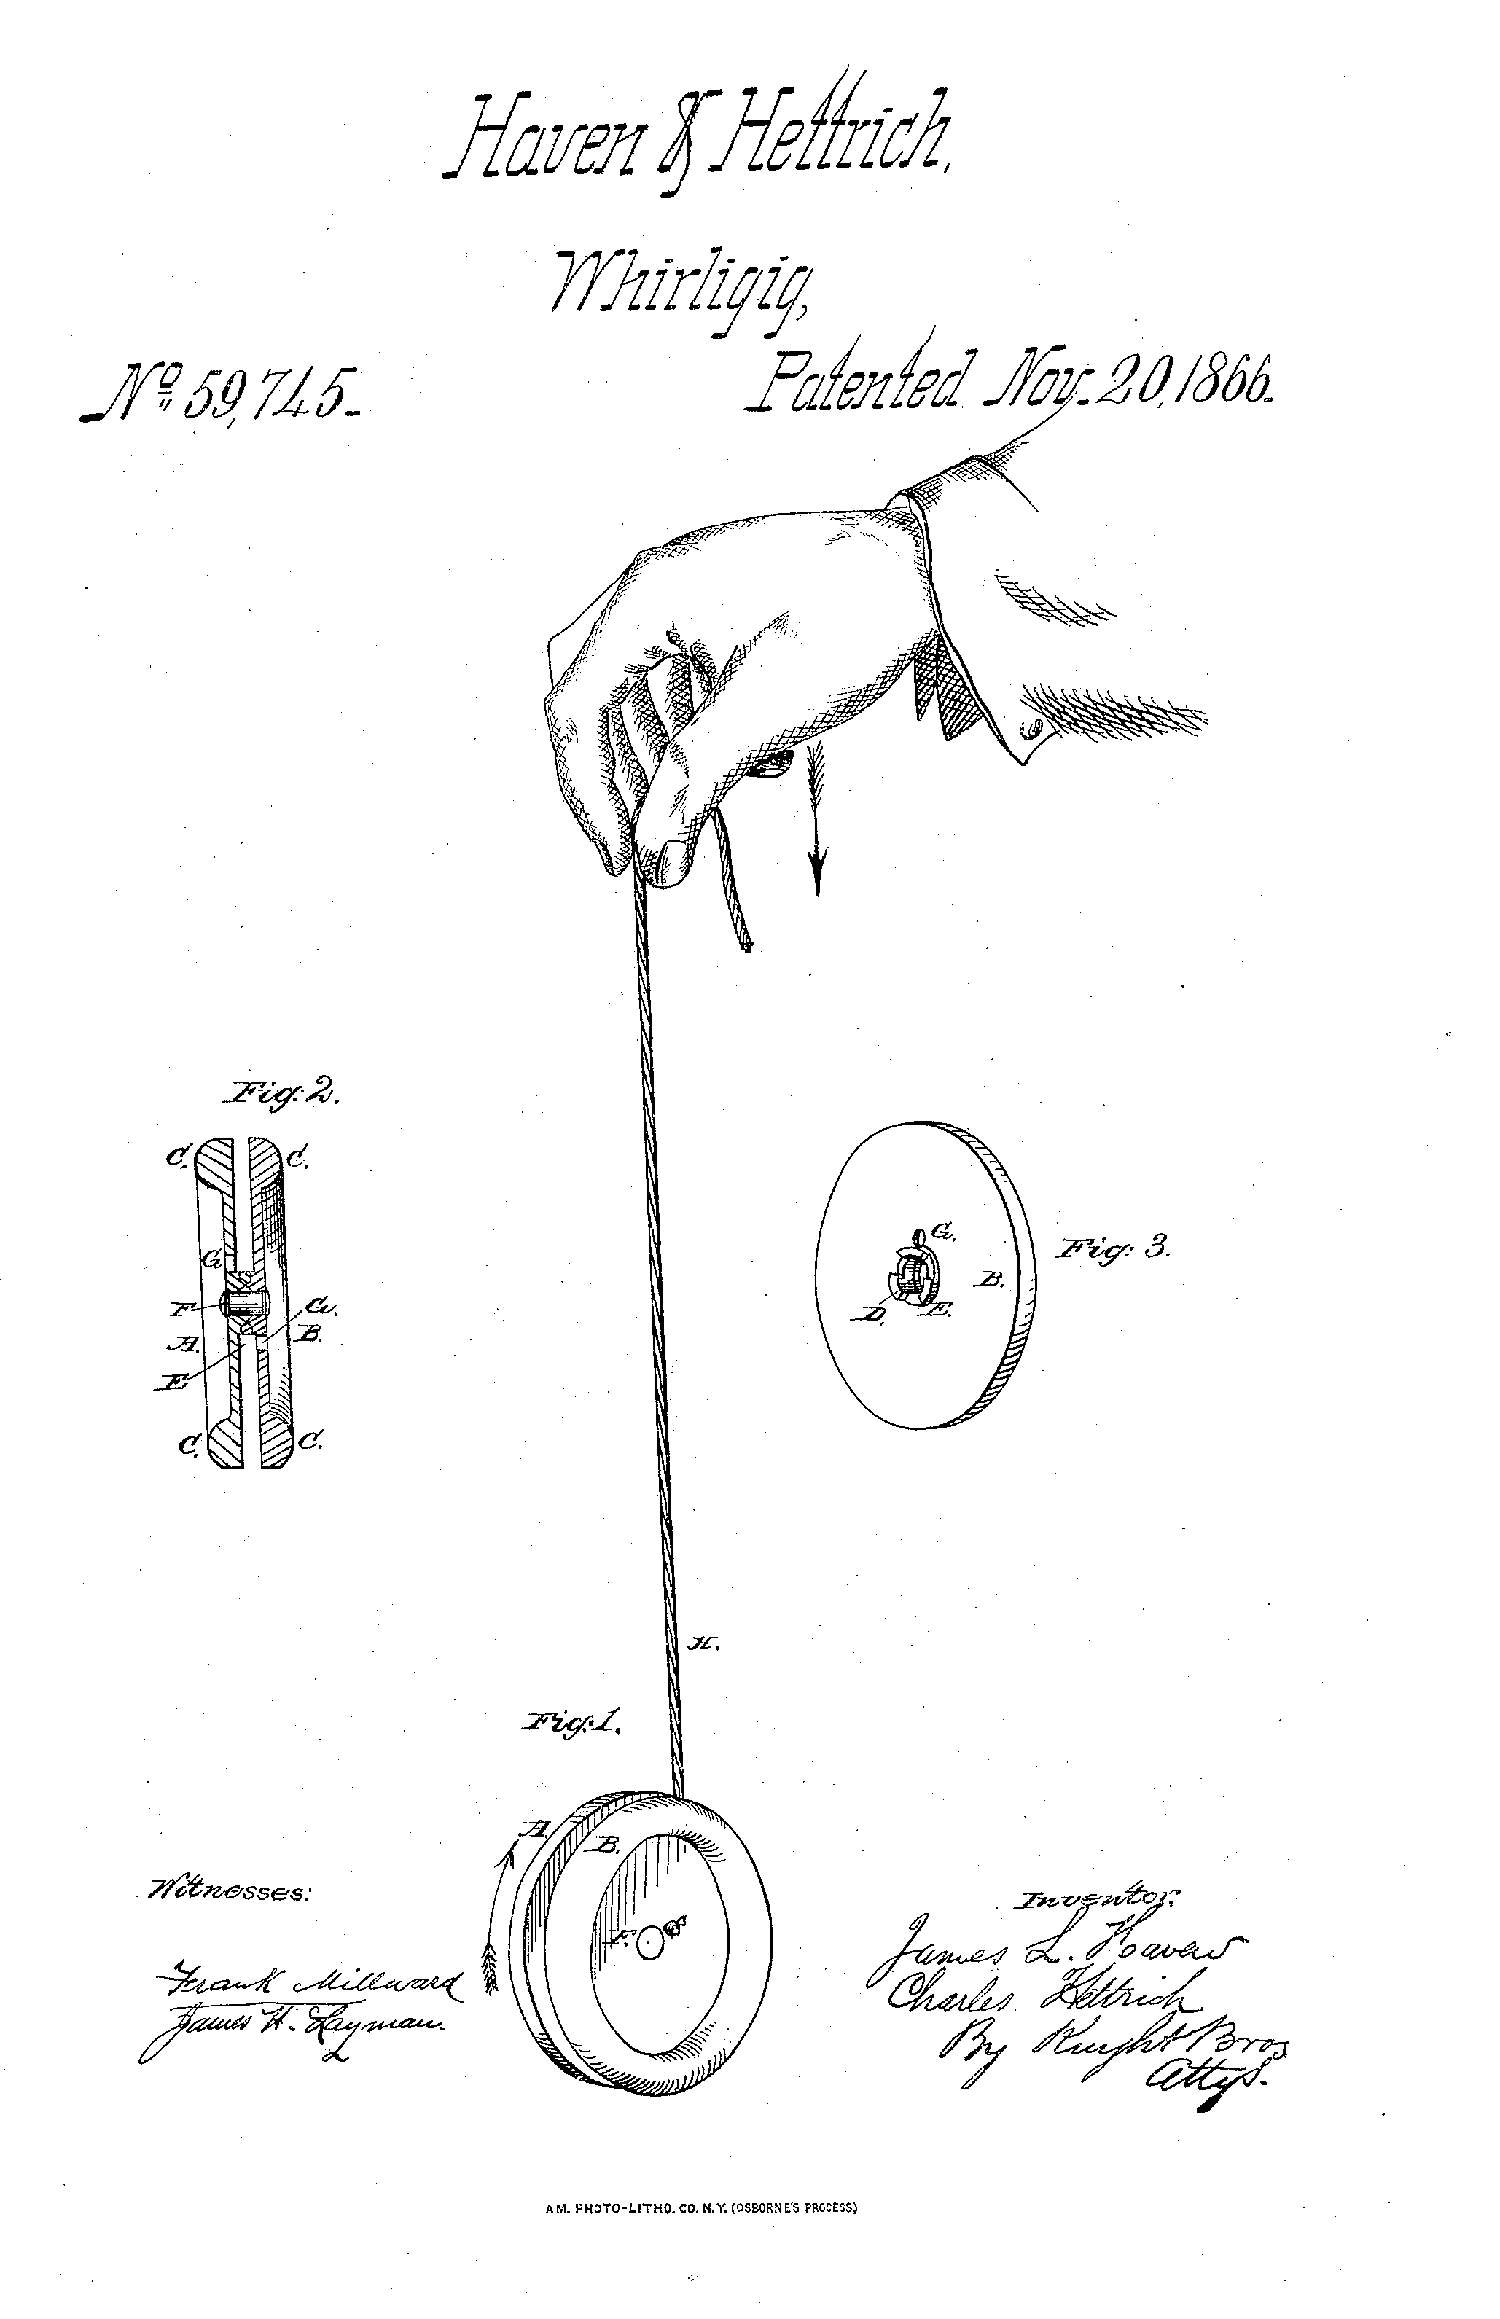 Haven & Hettrich,
Whirligig,
No 59,745. Patented Nov. 20, 1866.
Fig: 2.
C. C.
G.
F G.
A. B.
E
C. C.
G.
Fig: 3.
B.
D. E.
H.
Fig: 1.
A. B.
F. G
Witnesses:
Frank Millward
James H. Layman.
Inventor.
James L. Haven
Charles Hettrich
By Knight Bros
Attys.
AM. PHOTO-LITHO. CO. N.Y. (OSBORNE'S PROCESS)